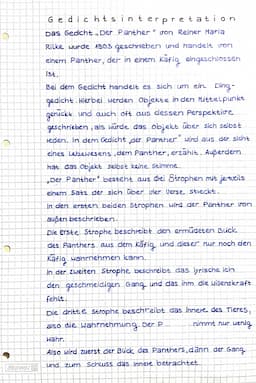 Gedichtsinterpretation
Das Gedicht „Der Panther" von Reiner Maria
Rilke wurde 1903 geschrieben und handelt von
einem Panther, der in einem Käfig eingeschlossen
ist.
Bei dem Gedicht handelt es sich um ein Ding-
gedicht. Hierbei werden Objekte in den Mittelpunkt
gerückt und auch oft aus dessen Perspektive
geschrieben, als würde das Objekt über sich selbst
reden. In dem Gedicht „der Panther" wird aus der Sicht
eines Lebewesens, dem Panther, erzählt. Außerdem
hat das Objekt selbst keine Stimme.
„Der Panther" besteht aus drei Strophen mit jeweils
einem Satz der sich über vier Verse streckt.
In den ersten beiden Strophen wird der Panther von
außen beschrieben.
Die erste Strophe beschreibt den ermüdeten Blick
des Panthers aus dem Käfig und dieser nur noch den
Käfig wahrnehmen kann.
In der zweiten Strophe beschreibt das lyrische Ich
den geschmeidigen Gang und das ihm die Willenskraft
fehlt.
Die dritte Strophe beschreibt das Innere des Tieres,
also die Wahrnehmung. Der P... nimmt nur wenig
wahr.
Also wird zuerst der Blick des Panthers, dann der Gang
und zum Schluss das Innere betrachtet.